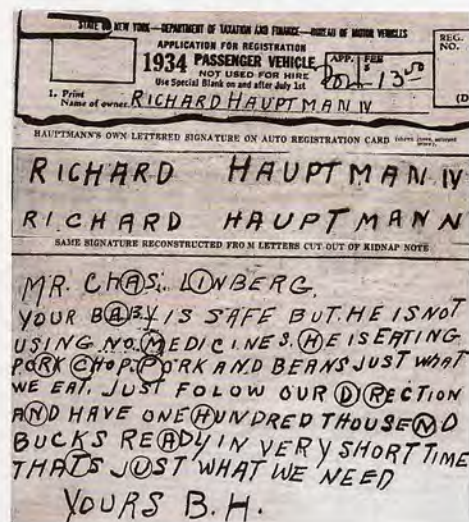 STATE OF NEW YORK—DEPARTMENT OF TAXATION AND FINANCE—BUREAU OF MOTOR VEHICLES
APPLICATION FOR REGISTRATION
1934 PASSENGER VEHICLE
NOT USED FOR HIRE
Use Special Blank on and after July 1st
APP. FEE
$ 13 50
REG.
NO.
1. Print
Name of owner RICHARD HAUPTMANN
(D
HAUPTMANN'S OWN LETTERED SIGNATURE ON AUTO REGISTRATION CARD
RICHARD HAUPTMANN
RICHARD HAUPTMANN
SAME SIGNATURE RECONSTRUCTED FROM LETTERS CUT OUT OF KIDNAP NOTE
MR. ChAS. LINBERG,
YOUR BABY IS SAFE BUT HE IS NOT
USING NO MEDICINES. HE IS EATING
PORK CHOP, PORK AND BEANS JUST WHAT
WE EAT. JUST FOLOW OUR DIRECTION
AND HAVE ONE HUNDRED THOUSEND
BUCKS READY IN VERY SHORT TIME
THATS JUST WHAT WE NEED
YOURS B.H.